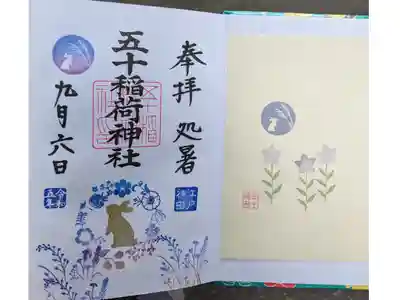 奉拝 処暑
五十稲荷神社
九月六日
江戸
神田
令和
五年